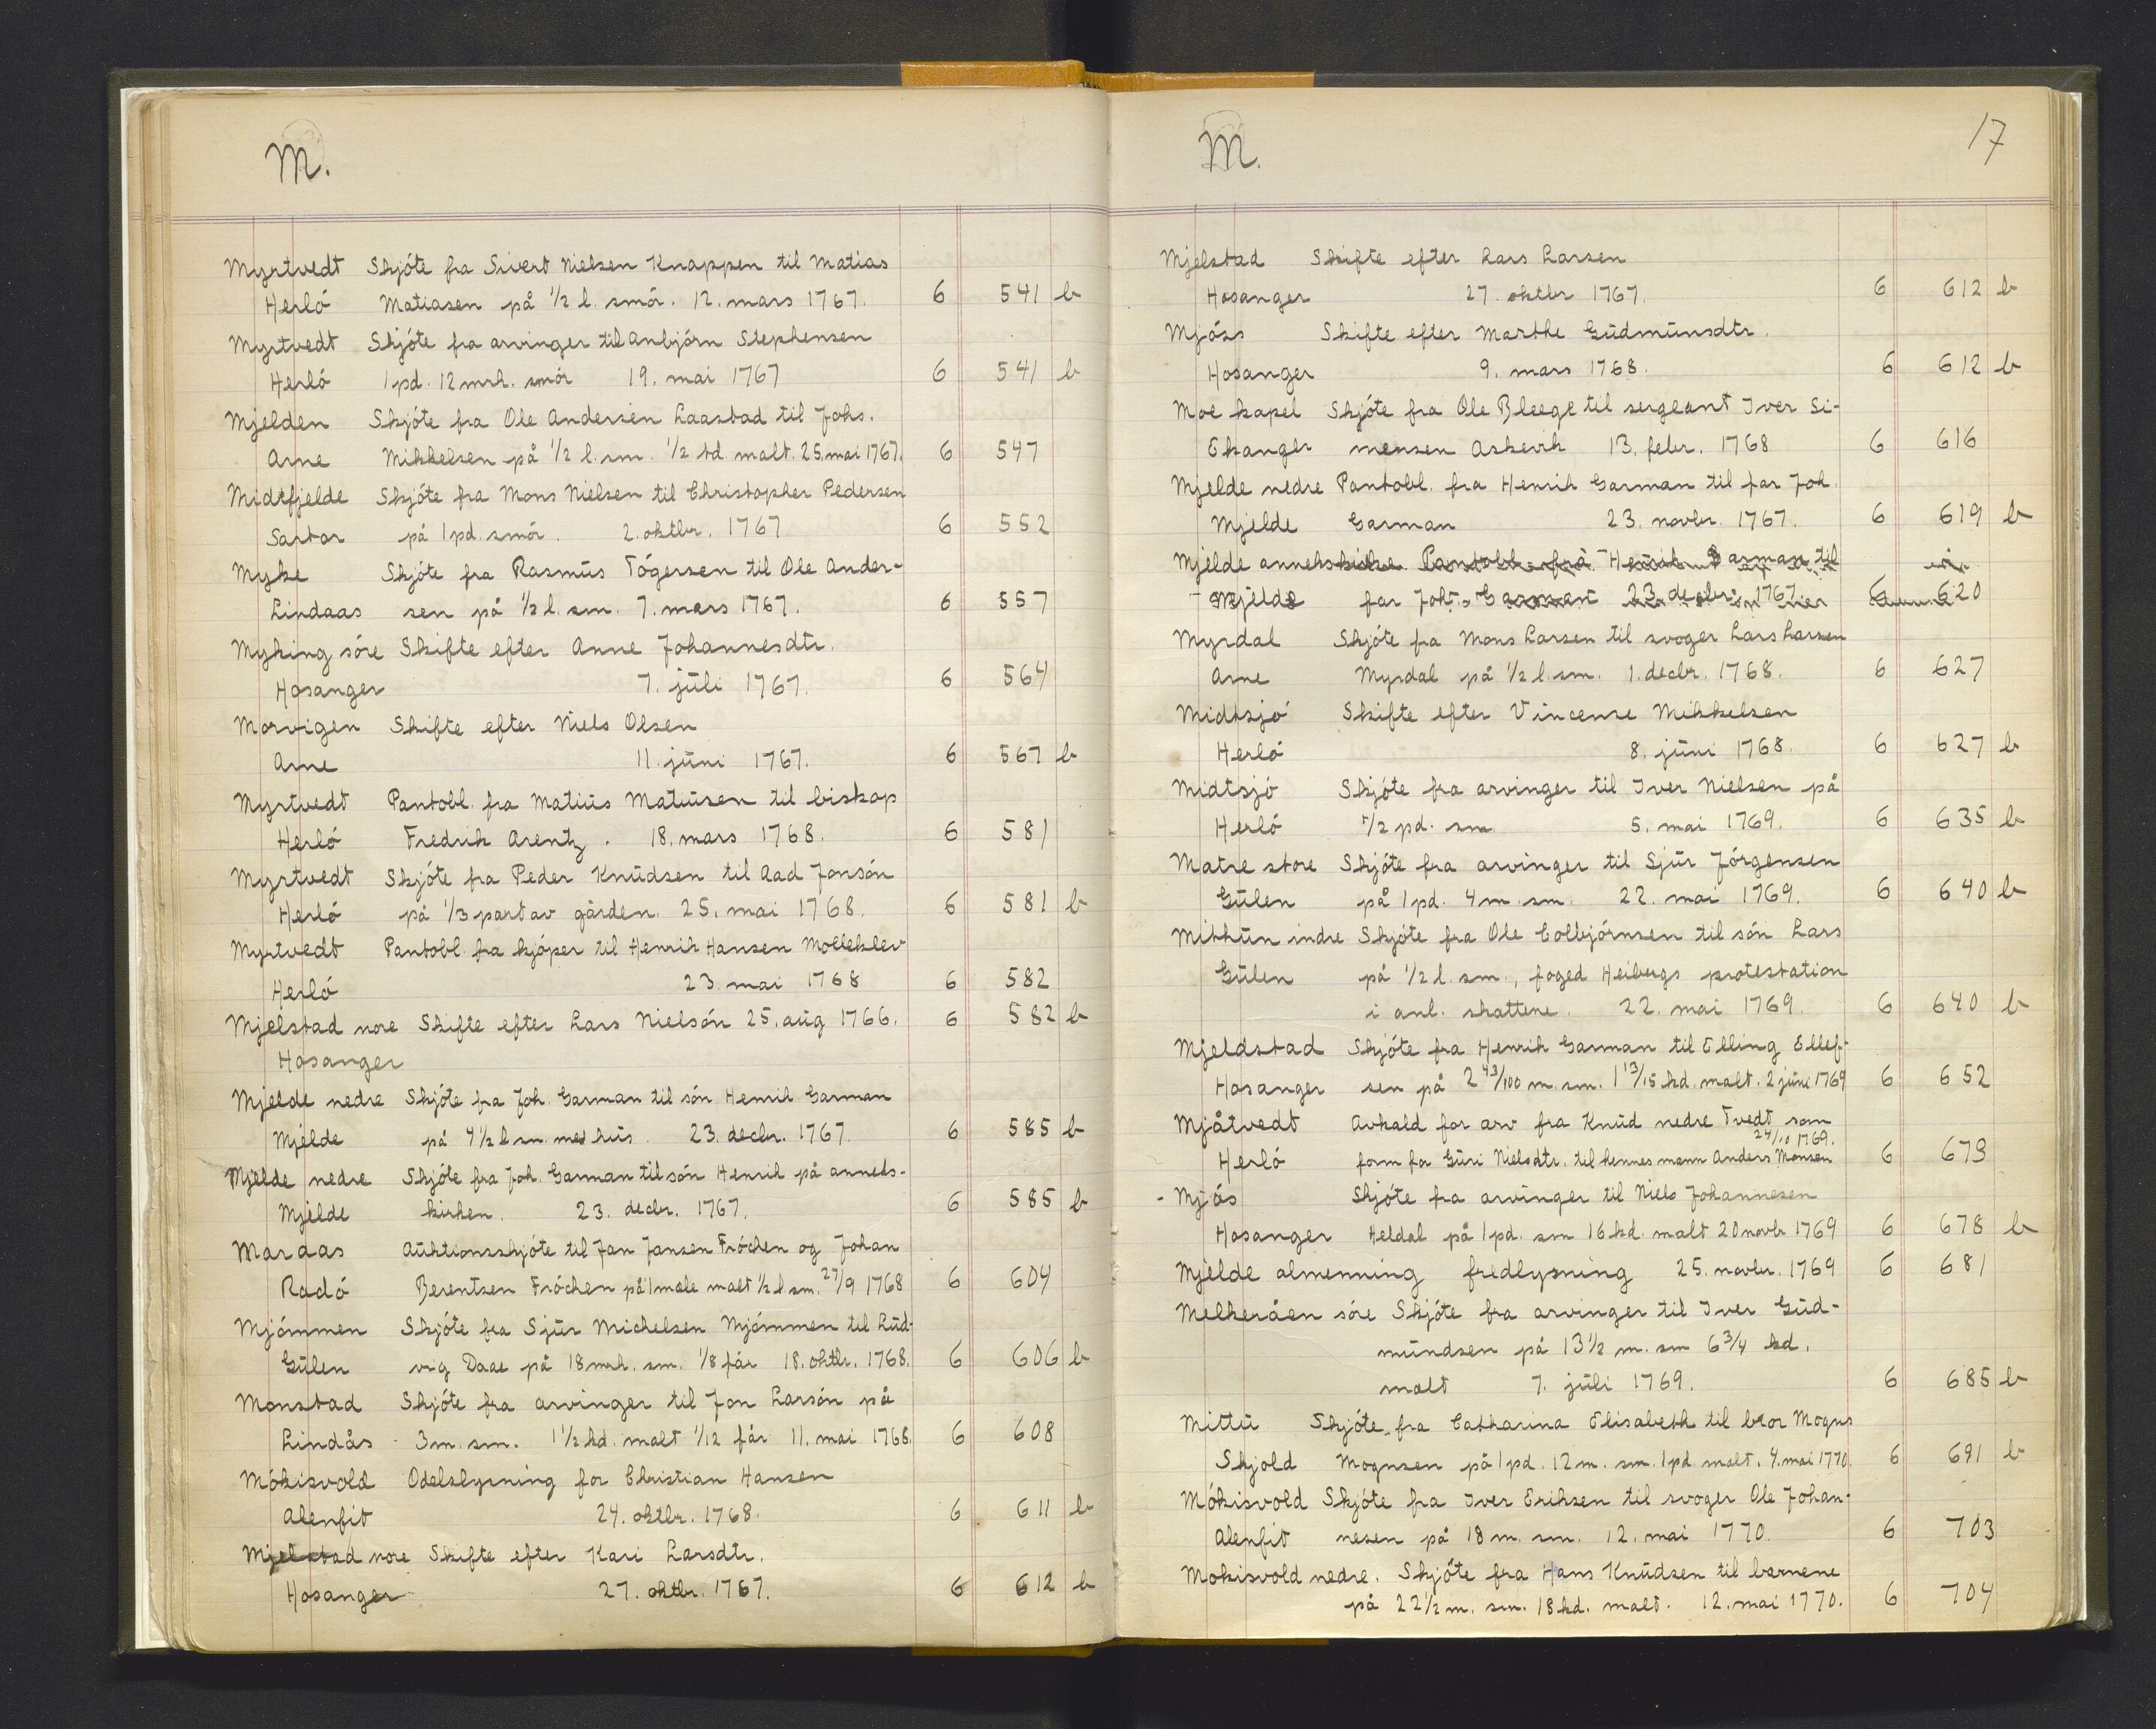 M.
Myrtvedt Skjóte fra Sivert Nielsen Knappen til Matias
Herló Matiasen på 1/2 l. smór. 12. mars 1767. 6 541 b
Myrtvedt Skjóte fra arvinger til Anbjórn Stephensen
Herló 1 pd. 12 mrk. smór 19. mai 1767 6 541 b
Mjelden Skjóte fra Ole Andersen Laastad til Johs.
Arne Mikkelsen på 1/2 l. sm. 1/2 td. malt. 25. mai 1767. 6 547
Midtfjelde Skjóte fra Mons Nielsen til Christopher Pedersen
Sartor på 1 pd. smór. 2. oktbr. 1767 6 552
Myke Skjóte fra Rasmus Tógersen til Ole Ander-
Lindaas sen på 1/2 l. sm. 7. mars 1767. 6 557
Myking sóre Skifte efter Anne Johannesdtr.
Hosanger 7. juli 1767. 6 564
Morvigen Skifte efter Niels Olsen
Arne 11. juni 1767. 6 567 b
Myrtvedt Pantobl. fra Matius Matiusen til biskop
Herló Fredrik Arentz. 18. mars 1768. 6 581
Myrtvedt Skjóte fra Peder Knudsen til Aad Jonsón
Herló på 1/3 part av gården. 25. mai 1768. 6 581 b
Myrtvedt Pantobl. fra kjóper til Henrik Hansen Molleklev
Herló 23. mai 1768 6 582
Mjelstad nore Skifte efter Lars Nielsón 25. aug 1766. 6 582 b
Hosanger
Mjelde nedre Skjóte fra Joh. Garman til són Henrik Garman
Mjelde på 4 1/2 l sm. med hus. 23. decbr. 1767. 6 585 b
Mjelde nedre Skjóte fra Joh. Garman til són Henrik på anneks-
Mjelde kirken. 23. decbr. 1767. 6 585 b
Maraas Auktionsskjóte til Jan Jansen Fróchen og Johan
Radó Berentsen Fróchen på 1 mæle malt 1/2 l. sm. 27/9 1768 6 604
Mjómmen Skjóte fra Sjur Michelsen Mjómmen til Lud-
Gulen vig Daae på 18 mrk. sm. 1/8 får 18. oktbr. 1768. 6 606 b
Monstad Skjóte fra arvinger til Jon Larsón på
Lindås 3 m. sm. 1 1/2 kd. malt 1/12 får 11. mai 1768. 6 608
Mókisvold Odelslysning for Christian Hansen
Alenfit 24. oktbr. 1768. 6 611 b
Mjelstad nore Skifte efter Kari Larsdtr.
Hosanger 27. oktbr. 1767. 6 612 b
M. 17
Mjelstad Skifte efter Lars Larsen
Hosanger 27. oktbr 1767. 6 612 b
Mjóss Skifte efter Marthe Gudmunsdtr.
Hosanger 9. mars 1768. 6 612 b
Moe kapel Skjóte fra Ole Bleege til sergeant Iver Si-
Ekanger mensen Askevik 13. febr. 1768 6 616
Mjelde nedre Pantobl. fra Henrik Garman til far Joh.
Mjelde Garman 23. novbr. 1767. 6 619 b
Mjelde annekskirke Pantobl. fra Henrik Garman til
Mjelde far Joh. Garman 23. decbr. 1767. 6 620
Myrdal Skjóte fra Mons Larsen til svoger Lars Larsen
Arne Myrdal på 1/2 l. sm. 1. decbr. 1768. 6 627
Midtsjó Skifte efter Vincense Mikkelsen
Herló 8. juni 1768. 6 627 b
Midtsjó Skjóte fra arvinger til Iver Nielsen på
Herló 1/2 pd. sm. 5. mai 1769. 6 635 b
Matre store Skjóte fra arvinger til Sjur Jórgensen
Gulen på 1 pd. 4 m. sm. 22. mai 1769. 6 640 b
Mithun indre Skjóte fra Ole Colbjórnsen til són Lars
Gulen på 1/2 l. sm., foged Heibergs protestation
i anl. skattene. 22. mai 1769. 6 640 b
Mjeldstad Skjóte fra Henrik Garman til Elling Ellef-
Hosanger sen på 2 43/100 m. sm. 1 13/15 kd. malt. 2 juni 1769 6 652
Mjåtvedt Avkald for arv fra Knud nedre Tvedt som
24/10 1769.
Herló form for Guri Nielsdtr. til hennes mann Anders Monsen 6 673
- Mjós Skjóte fra arvinger til Niels Johannesen
Hosanger Heldal på 1 pd. sm 16 kd. malt 20 novbr 1769 6 678 b
Mjelde almenning fredlysning 25. novbr. 1769 6 681
Melkeråen sóre Skjóte fra arvinger til Iver Gud-
mundsen på 13 1/2 m. sm 6 3/4 kd.
malt 7. juli 1769. 6 685 b
Mittu Skjóte fra Catharina Elisabeth til bror Mogns
Skjold Mognsen på 1 pd. 12 m. sm. 1 pd. malt. 4. mai 1770. 6 691 b
Mókisvold Skjóte fra Iver Eriksen til svoger Ole Johan-
Alenfit nesen på 18 m. sm. 12. mai 1770. 6 703
Mokisvold nedre. Skjóte fra Hans Knudsen til barnene
på 22 1/2 m. sm. 18 kd. malt. 12. mai 1770. 6 704